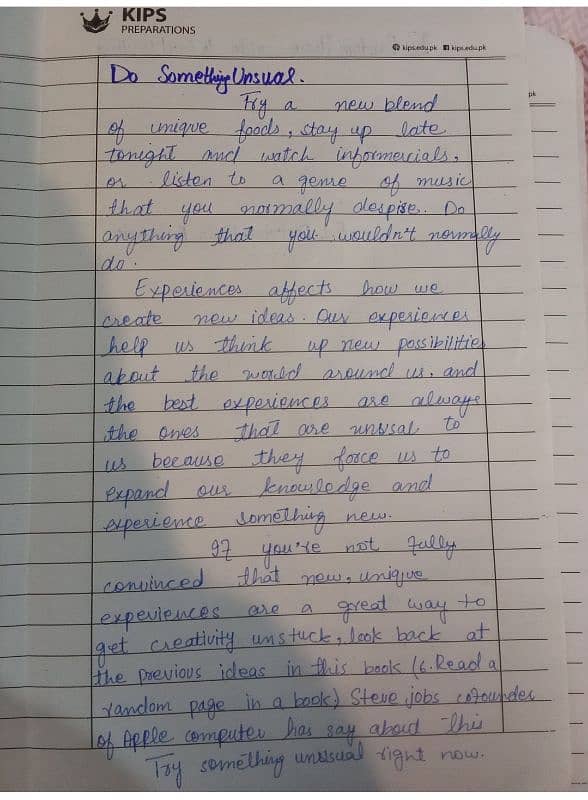 KIPS
PREPARATIONS
kips.edu.pk kips.edu.pk
pk
Do Something Unsual.
Try a new blend
of unique foods, stay up late
tonight and watch informercials,
or listen to a genre of music
that you normally despise. Do
anything that you wouldn't normally
do.
Experiences affects how we
create new ideas. Our experiences
help us think up new possibilities
about the world around us. and
the best experiences are always
the ones that are unusal to
us because they force us to
expand our knowledge and
experience something new.
If you're not fully
convinced that new, unique
experiences are a great way to
get creativity unstuck, look back at
the previous ideas in this book (6. Read a
random page in a book) Steve jobs cofounder
of Apple computer has say about this
Try something unusual right now.